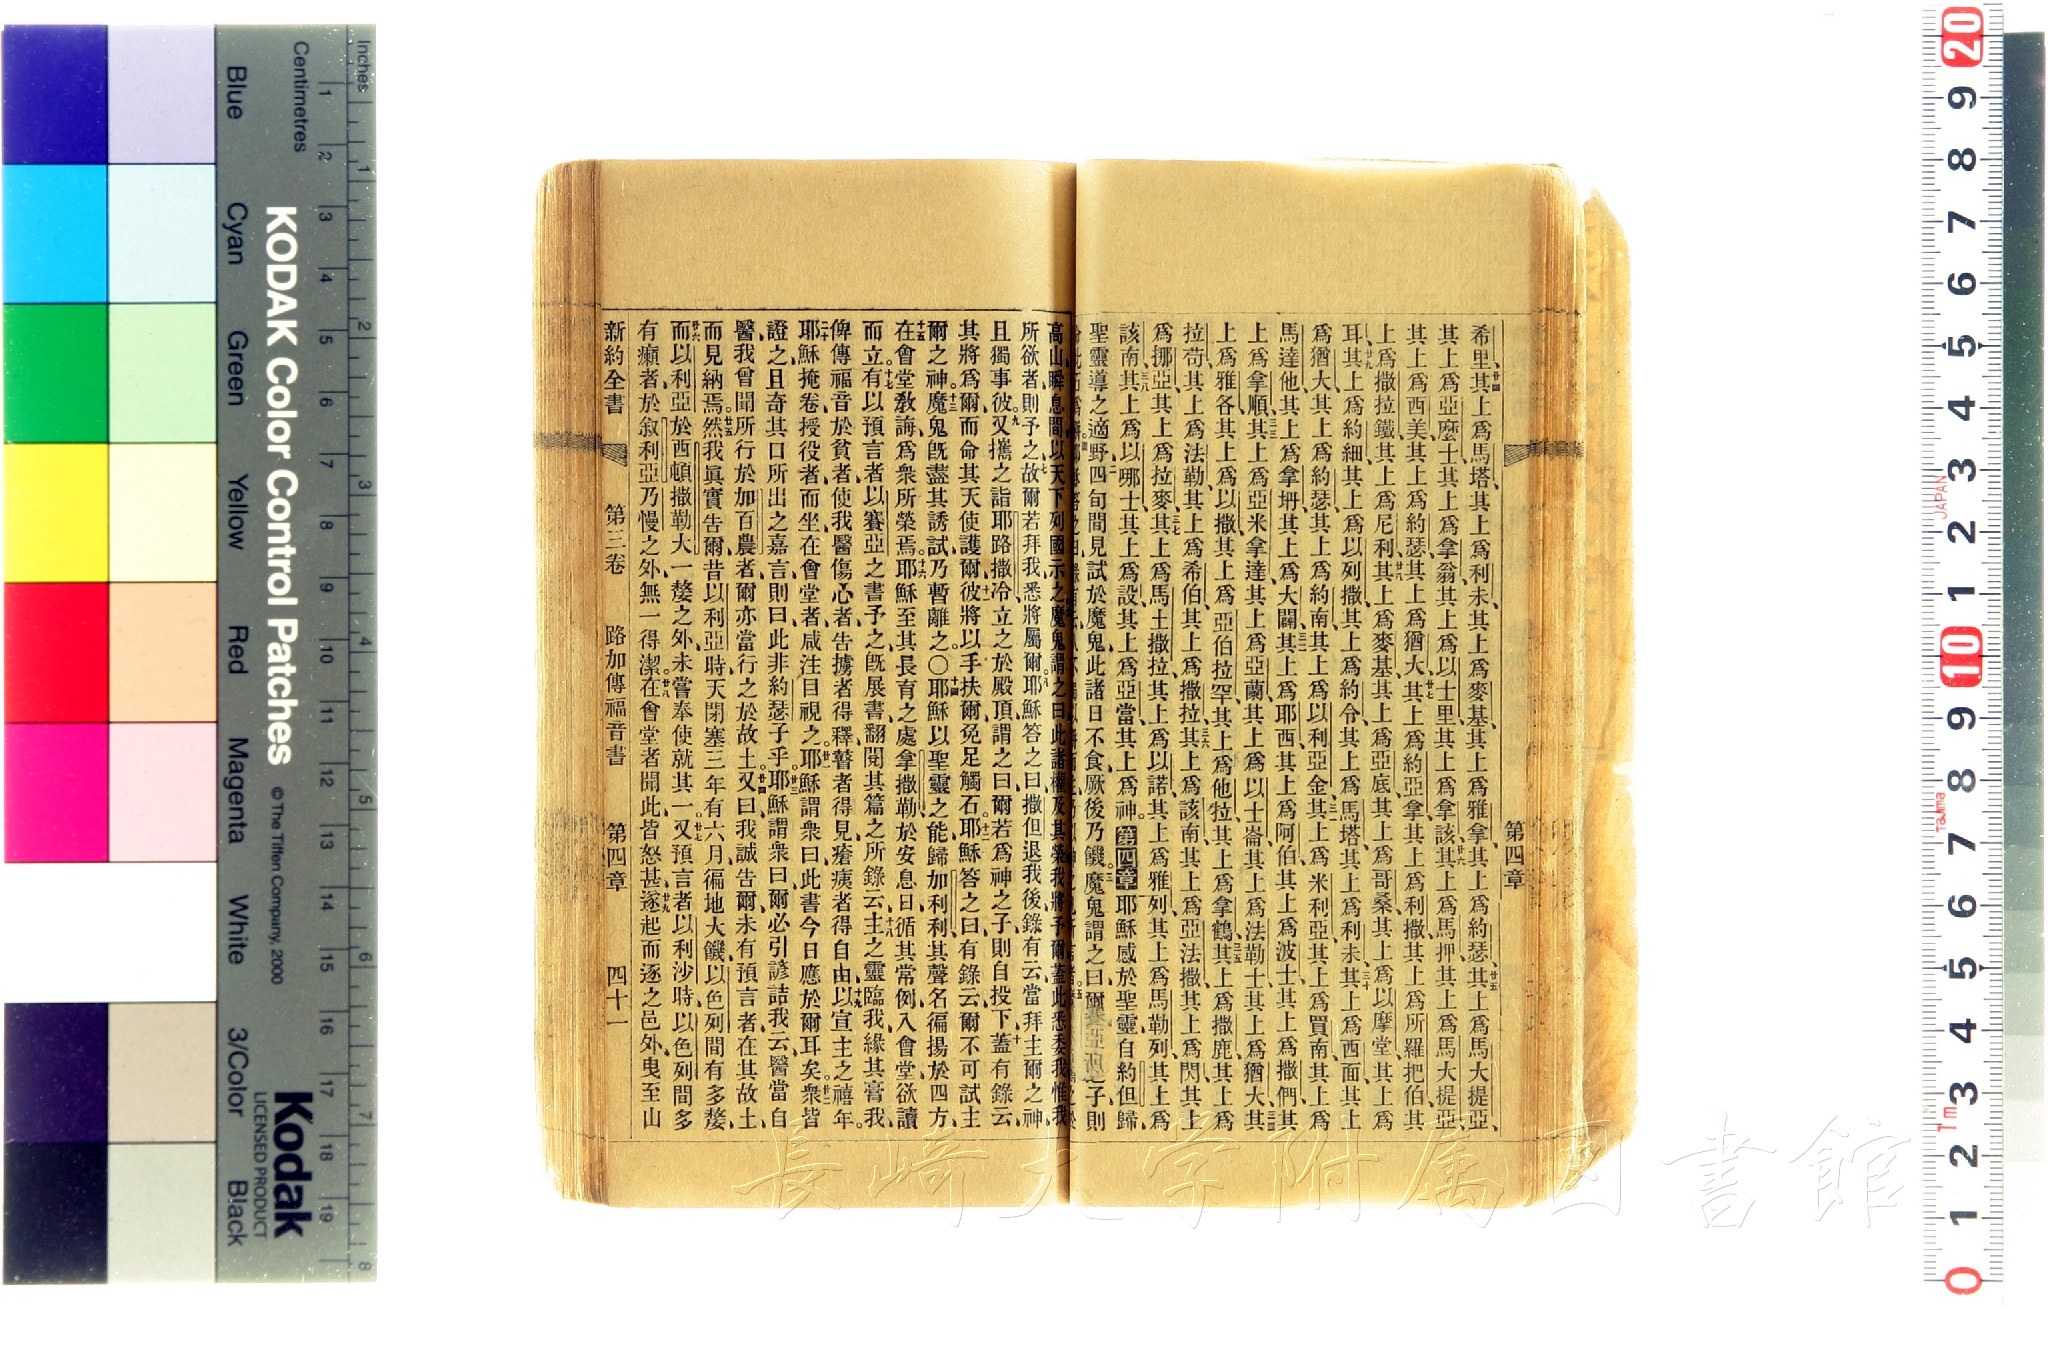 希里其上爲馬塔其上爲利未其上爲麥基其上爲雅拿其上爲約瑟其上爲馬大提亞
其上爲亞麼士其上爲拿翁其上爲以士里其上爲拿該其上爲馬押其上爲馬大提亞
其上爲西美其上爲約瑟其上爲猶大其上爲約亞拿其上爲利撒其上爲所羅把伯其
上爲撒拉鐵其上爲尼利其上爲麥基其上爲亞底其上爲哥桑其上爲以摩堂其上爲
耳其上爲約細其上爲以列撒其上爲約令其上爲馬塔其上爲利未其上爲西面其上
爲猶大其上爲約瑟其上爲約南其上爲以利亞金其上爲米利亞其上爲買南其上爲
馬達他其上爲拿坍其上爲大闢其上爲耶西其上爲阿伯其上爲波士其上爲撒們其
上爲拿順其上爲亞米拿達其上爲亞蘭其上爲以士崙其上爲法勒士其上爲猶大其
上爲雅各其上爲以撒其上爲亞伯拉罕其上爲他拉其上爲拿鶴其上爲撒鹿其上爲
拉苟其上爲法勒其上爲希伯其上爲撒拉其上爲該南其上爲亞法撒其上爲閃其上
爲挪亞其上爲拉麥其上爲馬土撒拉其上爲以諾其上爲雅列其上爲馬勒列其上爲
該南其上爲以哪士其上爲設其上爲亞當其上爲神第四章耶穌感於聖靈自約但歸
聖靈導之適野四旬間見試於魔鬼此諸日不食厥後乃饑魔鬼謂之曰爾子則
第四章
高山瞬息間以天下列國示之魔鬼謂之曰此諸權及其榮我將予爾蓋此悉委我惟我
所欲者則予之故爾若拜我悉將屬爾耶穌答之曰撒但退我後錄有云當拜主爾之神
且獨事彼又攜之詣耶路撒冷立之於殿頂謂之曰爾若爲神之子則自投下蓋有錄云
其將爲爾而命其天使護爾彼將以手扶爾免足觸石耶穌答之曰有錄云爾不可試主
爾之神魔鬼旣盡其誘試乃暫離之〇耶穌以聖靈之能歸加利利其聲名徧揚於四方
在會堂教誨爲衆所榮焉耶穌至其長育之處拿撒勒於安息日循其常例入會堂欲讀
而立有以預言者以賽亞之書予之旣展書翻閱其篇之所錄云主之靈臨我緣其膏我
俾傳福音於貧者使我醫傷心者告擄者得釋瞽者得見瘡痍者得自由以宣主之禧年
耶穌掩卷授役者而坐在會堂者咸注目視之耶穌謂衆曰此書今日應於爾耳矣衆皆
證之且奇其口所出之嘉言則曰此非約瑟子乎耶穌謂衆曰爾必引諺詰我云醫當自
醫我曾聞所行於加百農者爾亦當行之於故土又曰我誠告爾未有預言者在其故土
而見納焉然我眞實告爾昔以利亞時天閉塞三年有六月徧地大饑以色列間有多嫠
而以利亞於西頓撒勒大一嫠之外未嘗奉使就其一又預言者以利沙時以色列間多
有癩者於叙利亞乃慢之外無一得潔在會堂者聞此皆怒甚遂起而逐之邑外曳至山
新約全書 第三卷 路加傳福音書 第四章 四十一
長崎大学附属図書館
KODAK Color Control Patches
© The Tiffen Company, 2000
Kodak
LICENSED PRODUCT
Inches
Centimetres
Blue Cyan Green Yellow Red Magenta White 3/Color Black
JAPAN
Tajima